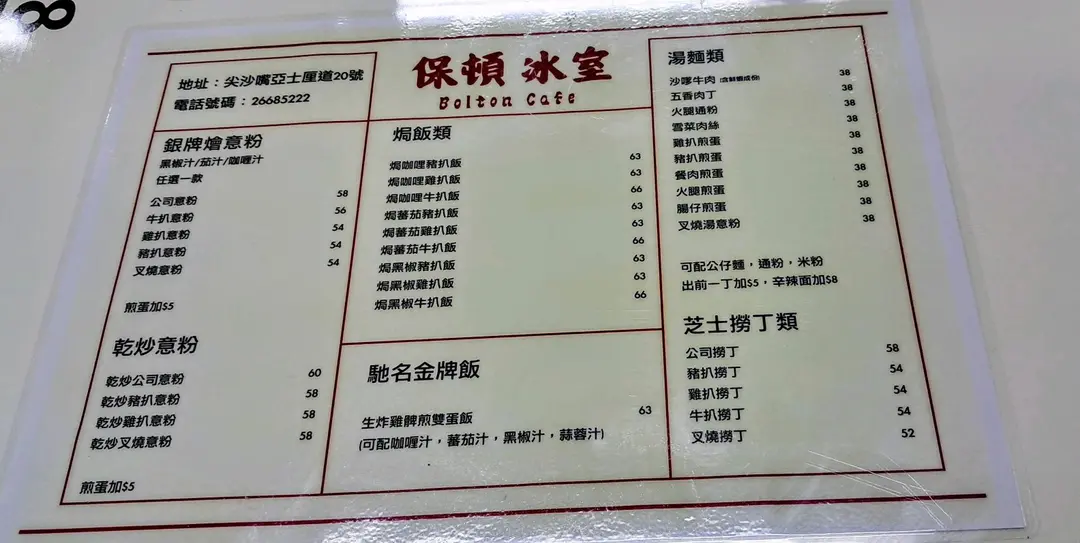 保頓冰室
Bolton Cafe
地址：尖沙嘴亞士厘道20號
電話號碼：26685222
銀牌燴意粉
黑椒汁/茄汁/咖喱汁
任選一款
公司意粉 58
牛扒意粉 56
雞扒意粉 54
豬扒意粉 54
叉燒意粉 54
煎蛋加$5
乾炒意粉
乾炒公司意粉 60
乾炒豬扒意粉 58
乾炒雞扒意粉 58
乾炒叉燒意粉 58
煎蛋加$5
焗飯類
焗咖哩豬扒飯 63
焗咖哩雞扒飯 63
焗咖哩牛扒飯 66
焗蕃茄豬扒飯 63
焗蕃茄雞扒飯 63
焗蕃茄牛扒飯 66
焗黑椒豬扒飯 63
焗黑椒雞扒飯 63
焗黑椒牛扒飯 66
馳名金牌飯
生炸雞髀煎雙蛋飯 63
(可配咖喱汁，蕃茄汁，黑椒汁，蒜蓉汁)
湯麵類
沙嗲牛肉 (含鮮蝦成份) 38
五香肉丁 38
火腿通粉 38
雪菜肉絲 38
雞扒煎蛋 38
豬扒煎蛋 38
餐肉煎蛋 38
火腿煎蛋 38
腸仔煎蛋 38
叉燒湯意粉 38
可配公仔麵，通粉，米粉
出前一丁加$5，辛辣面加$8
芝士撈丁類
公司撈丁 58
豬扒撈丁 54
雞扒撈丁 54
牛扒撈丁 54
叉燒撈丁 52